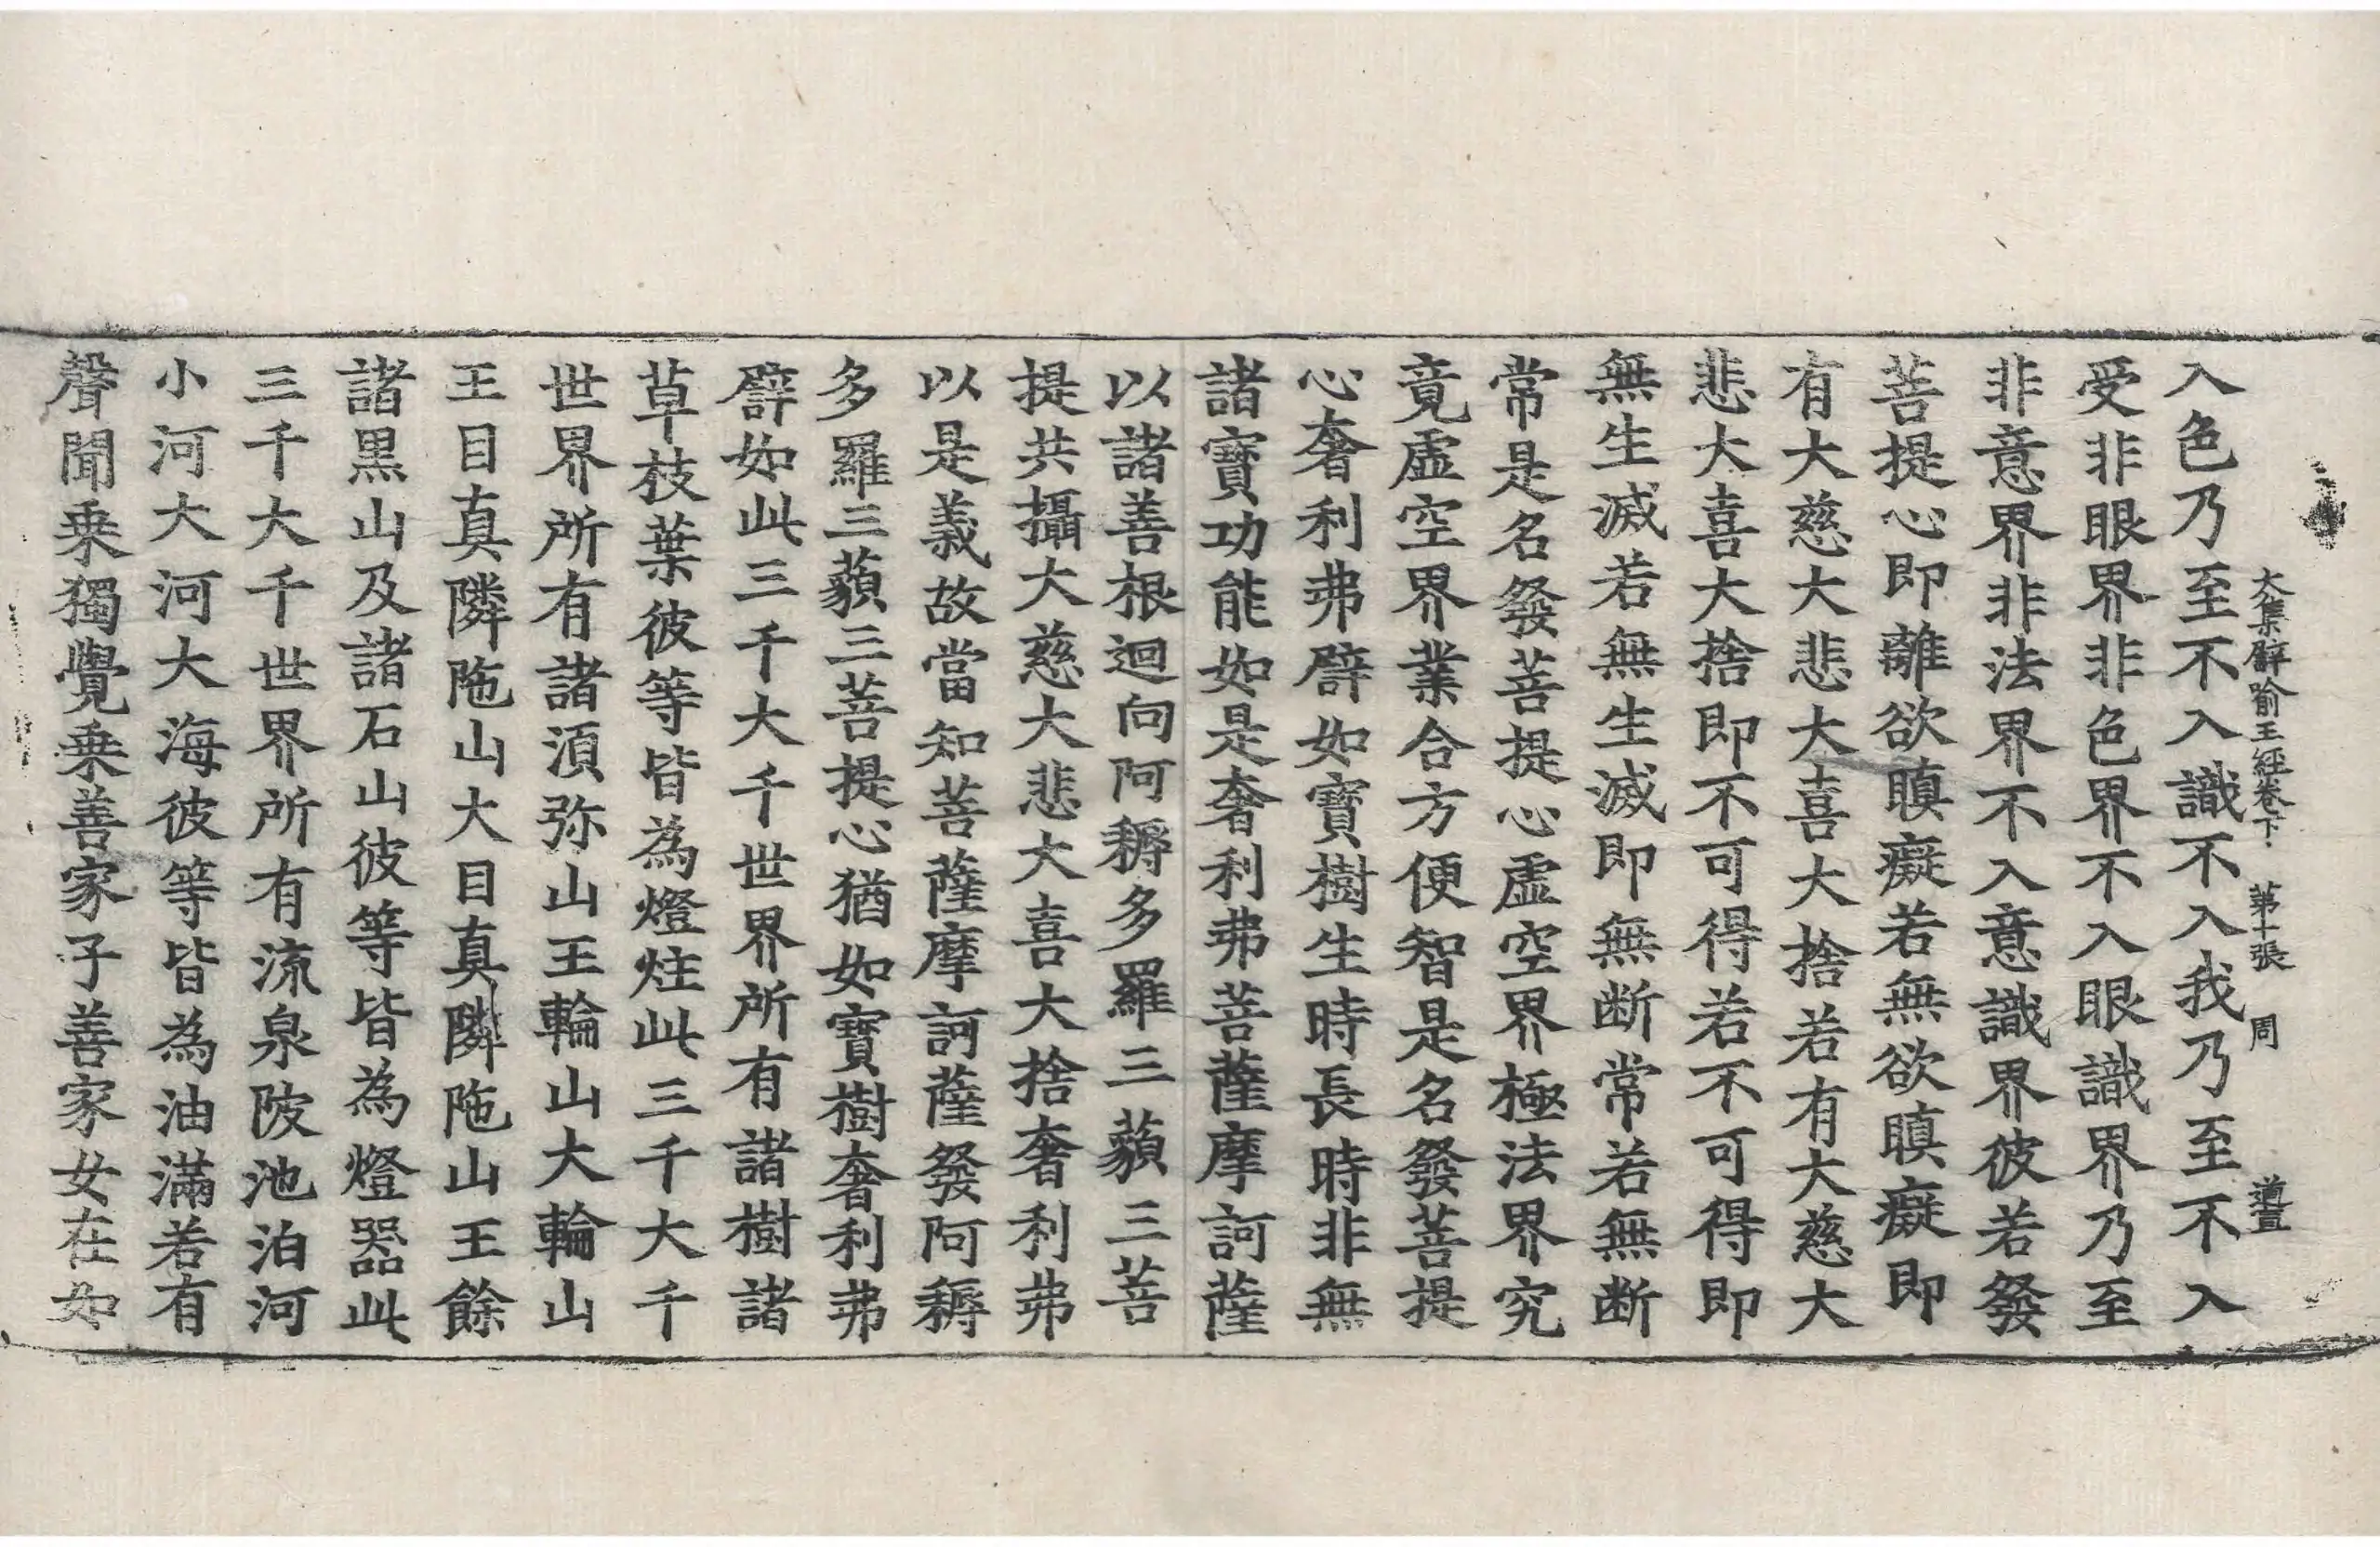 大集譬喻王經卷下 第十張 周 道宣
入色乃至不入識不入我乃至不入
受非眼界非色界不入眼識界乃至
非意界非法界不入意識界彼若發
菩提心即離欲瞋癡若無欲瞋癡即
有大慈大悲大喜大捨若有大慈大
悲大喜大捨即不可得若不可得即
無生滅若無生滅即無断常若無断
常是名發菩提心虛空界極法界究
竟虛空界業合方便智是名發菩提
心奢利弗譬如寶樹生時長時非無
諸寶功能如是奢利弗菩薩摩訶薩
以諸善根迴向阿耨多羅三藐三菩
提共攝大慈大悲大喜大捨奢利弗
以是義故當知菩薩摩訶薩發阿耨
多羅三藐三菩提心猶如寶樹奢利弗
譬如此三千大千世界所有諸樹諸
草枝葉彼等皆為燈炷此三千大千
世界所有諸湏弥山王輪山大輪山
王目真隣陁山大目真隣陁山王餘
諸黒山及諸石山彼等皆為燈器此
三千大千世界所有流泉陂池泊河
小河大河大海彼等皆為油滿若有
聲聞乗獨覺乗善家子善家女在如